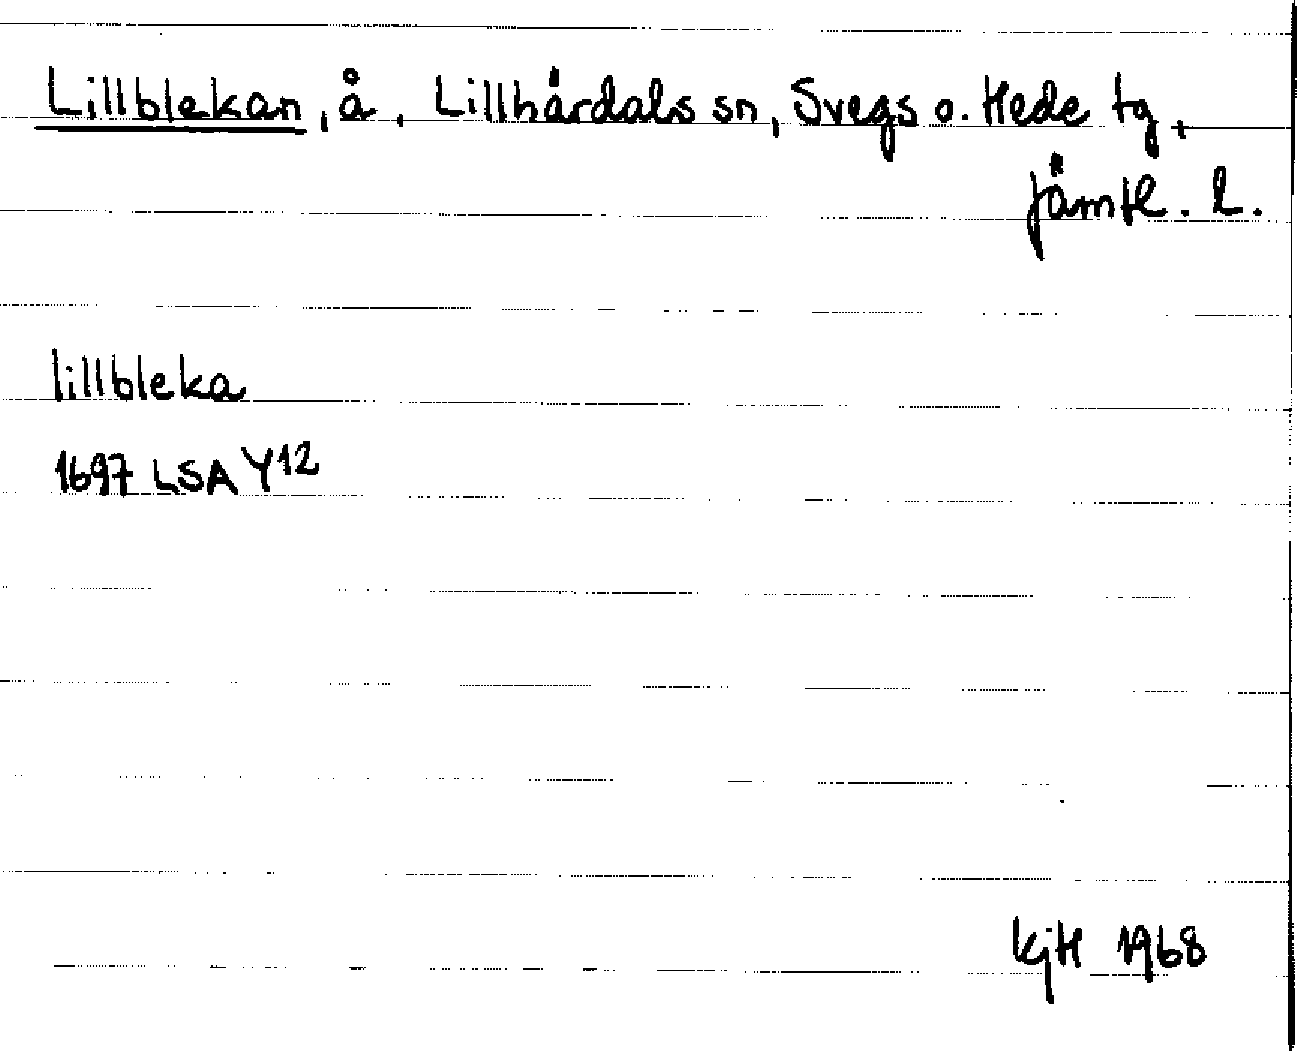 Lillblekan, å, Lillhärdals sn, Svegs o. Hede tg,
Jämtl. l.
lillbleka
1697 LSA Y12
KjH 1968